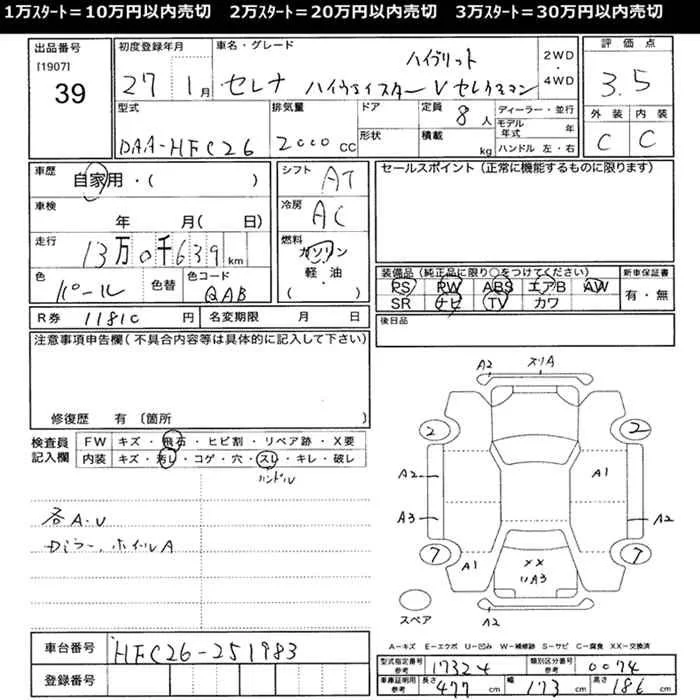 1万ｽﾀｰﾄ＝10万円以内売切　2万ｽﾀｰﾄ＝20万円以内売切　3万ｽﾀｰﾄ＝30万円以内売切
出品番号
[1907]
39
初度登録年月
27年1月
車名・グレード
ハイブリット
セレナ ハイウェイスター V セレクション
2WD
・
4WD
評価点
3.5
外装 内装
C C
型式
DAA-HFC26
排気量
2000 CC
ドア
形状
定員 8 人
積載 kg
ディーラー・並行
モデル年式 年
ハンドル 左・右
車歴
自家用・( )
車検
年 月( 日)
走行
13万0千639 km
色
パール
色替
色コード
QAB
シフト
AT
冷房
AC
燃料
ガソリン
軽・油
・( )
セールスポイント(正常に機能するものに限ります)
装備品(純正品に限り○をつけてください)
PS PW ABS エアB AW
SR ナビ TV カワ
新車保証書
有・無
後日品
R券 11810 円
名変期限 月 日
注意事項申告欄(不具合内容等は具体的に記入して下さい)
修復歴 有〔箇所
検査員
記入欄
FW キズ・飛石・ヒビ割・リペア跡・X要
内装 キズ・汚レ・コゲ・穴・スレ・キレ・破レ
ハンドル
各A・U
カミラー、ホイルA
A2 スリA
2 2
A2 A1
A3 A2
7 7
A1
XX
リA3
A2
スペア
A－キズ E－エクボ U－凹み W－補修跡 S－サビ C－腐食 XX－交換済
車台番号 HFC26-251983
登録番号
型式指定番号
参考
17324
類別区分番号
参考
0074
車庫証明用
参考
長さ 477 cm 幅 173 cm 高さ 186 cm